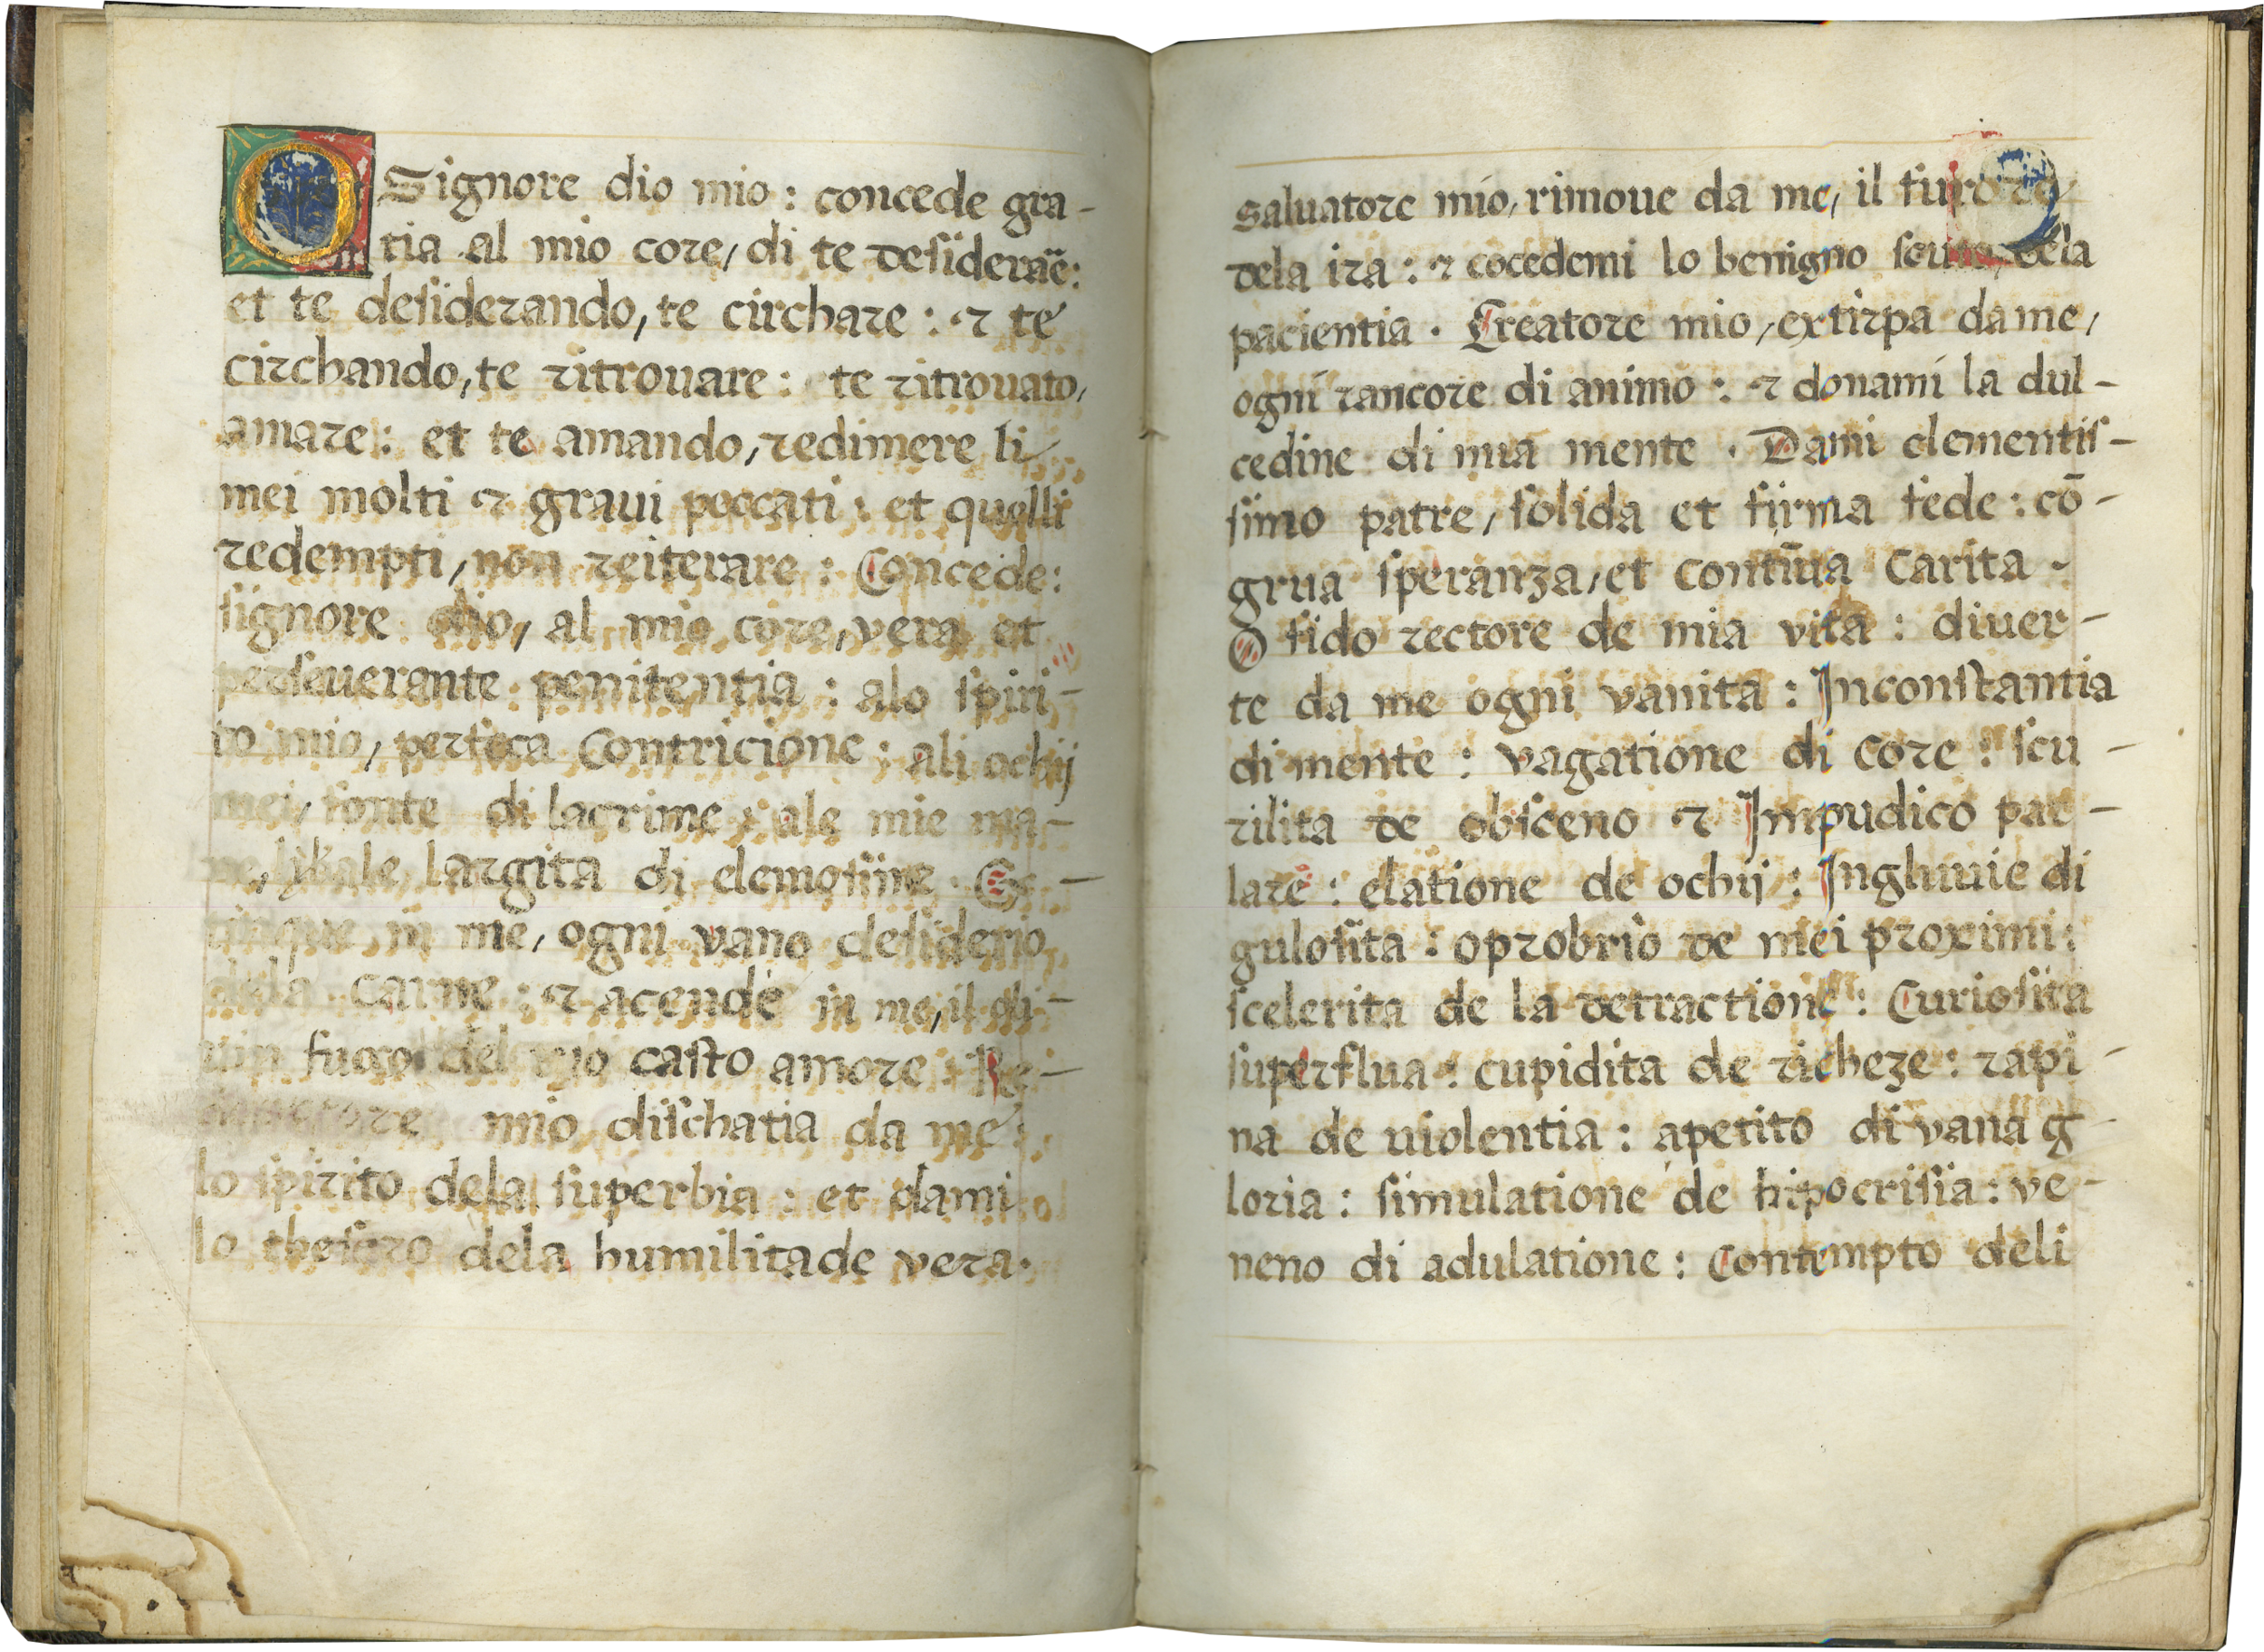 O Signore dio mio: concede gra-
tia al mio core, di te desiderāe:
et te desiderando, te circhare: ⁊ te
circhando, te ritrouare: te ritrouato,
amare: et te amando, redimere li
mei molti ⁊ graui peccati: et quelli
redempti, non reiterare: Concede:
signore dio, al mio core, vera et
perseuerante penitentia: alo spiri-
to mio, perfecta Contricione: ali ochij
mei, fonte di lacrime: ale mie ma-
ne, largita di elemosine. Ex-
tingue in me, ogni vano desiderio
dela carne: ⁊ acende in me, il di-
uin fuoco del tuo casto amore. Re-
demptore mio dischatia da me:
lo spirito dela superbia: et dami
lo thesoro dela humilitade vera.
saluatore mio, rimoue da me, il furore
dela ira: ⁊ cocedemi lo benigno scuto, dela
pacientia. Creatore mio, extirpa da me,
ogni rancore di animo: ⁊ donami la dul-
cedine di mia mente. Dami clementis-
simo patre, solida et firma fede: cō-
grua speranza, et contīua Carita.
O fido rectore de mia vita: diuer-
te da me ogni vanita: Inconstantia
di mente: vagatione di core: scu-
rilita de obsceno ⁊ Impudico par-
lare: elatione de ochij: Ingluuie di
gulosita: oprobrio de mei proximi:
scelerita de la detractione: Curiosita
superflua: cupidita de richeze: rapi-
na de uiolentia: apetito di vana g-
loria: simulatione de hipocrisia: ve-
neno di adulatione: Contempto deli